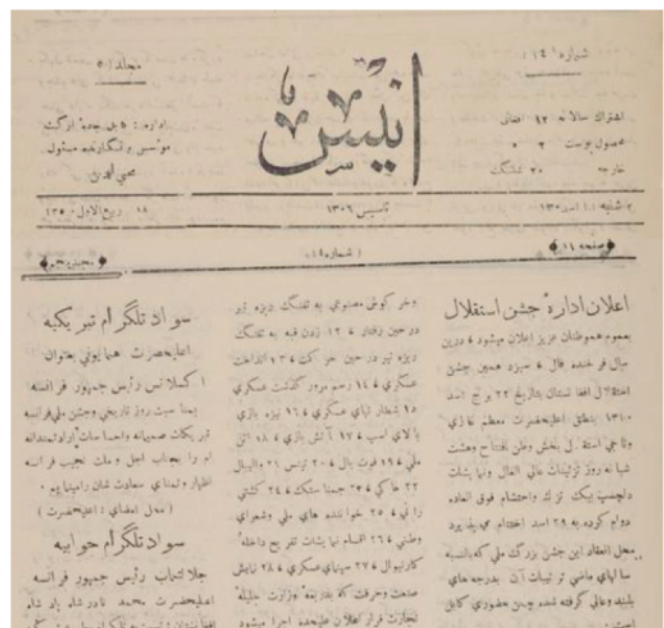 شماره ۱۴
اشتراك سالانه ۱۲ افغانی
محصول پوست ۲
خارجه ۲۰ شلنگ
انیس
مجلد ۵
اداره :
موسس و نگارنده مسئول
محیی الدین
تاسیس ۱۳۰۶
۱۸ ربیع الاول ۱۳۵۰
اعلان ادارهٔ جشن استقلال
بعموم هموطنان عزیز اعلان میشود درین
سال فرخنده فال سیزدهمین جشن
استقلال افغانستان بتاریخ ۲۲ برج اسد
۱۳۱۰ بنطق اعلیحضرت معظم غازی
و ناجی استقلال بخش وطن افتتاح و هشت
شبانه روز تزئینات عالی العال و نمایشات
دلچسپ بیک تزك و احتشام فوق العاده
دوام کرده به ۲۹ اسد اختتام می پذیرد
محل انعقاد این جشن بزرگ ملی که بالنسبه
سالهای ماضی ترتیبات آن بدرجه های
بلند و عالی گرفته شده چمن حضوری کابل
و خر گوش مصنوعی به تفنگ دیزه تیر
در حین رفتار ۱۲ زدن قبه به تفنگ
دیزه تیر در حین حرکت ۱۳ انداخت
عسکری ۱۴ رسم مرور گذشت عسکری
۱۵ قطار نهای عسکری ۱۶ نیزه بازی
بالای اسپ ۱۷ آتش بازی ۱۸ اتن
ملی ۱۹ فوت بال ۲۰ تونس ۲۱ والیبال
۲۲ هاکی ۲۳ جمناستك ۲۴ کشتی
رانی ۲۵ خواننده های ملی و شعرای
وطنی ۲۶ اقسام نمایشات تفریح داخلهٔ
کارنیوال ۲۷ سینمای عسکری ۲۸ نمایش
صنعت و حرفت که بذریعهٔ وزارت جلیلهٔ
تجارت قرار اعلان علیحده اجرا میشود
سواد تلگرام تبریکیه
اعلیحضرت همایونی بعنوان
رئیس جمهور فرانسه
بمناسبت روز تاریخی و جشن ملی فرانسه
تبریکات صمیمانه و احساسات ارادتمندانه
ام را بجناب اجل و ملت نجیب فرانسه
اظهار و تمنای سعادت شان را مینمایم .
( محل امضای : اعلیحضرت )
سواد تلگرام جوابیه
جلالتماب رئیس جمهور فرانسه
اعلیحضرت محمد نادر شاه پادشاه